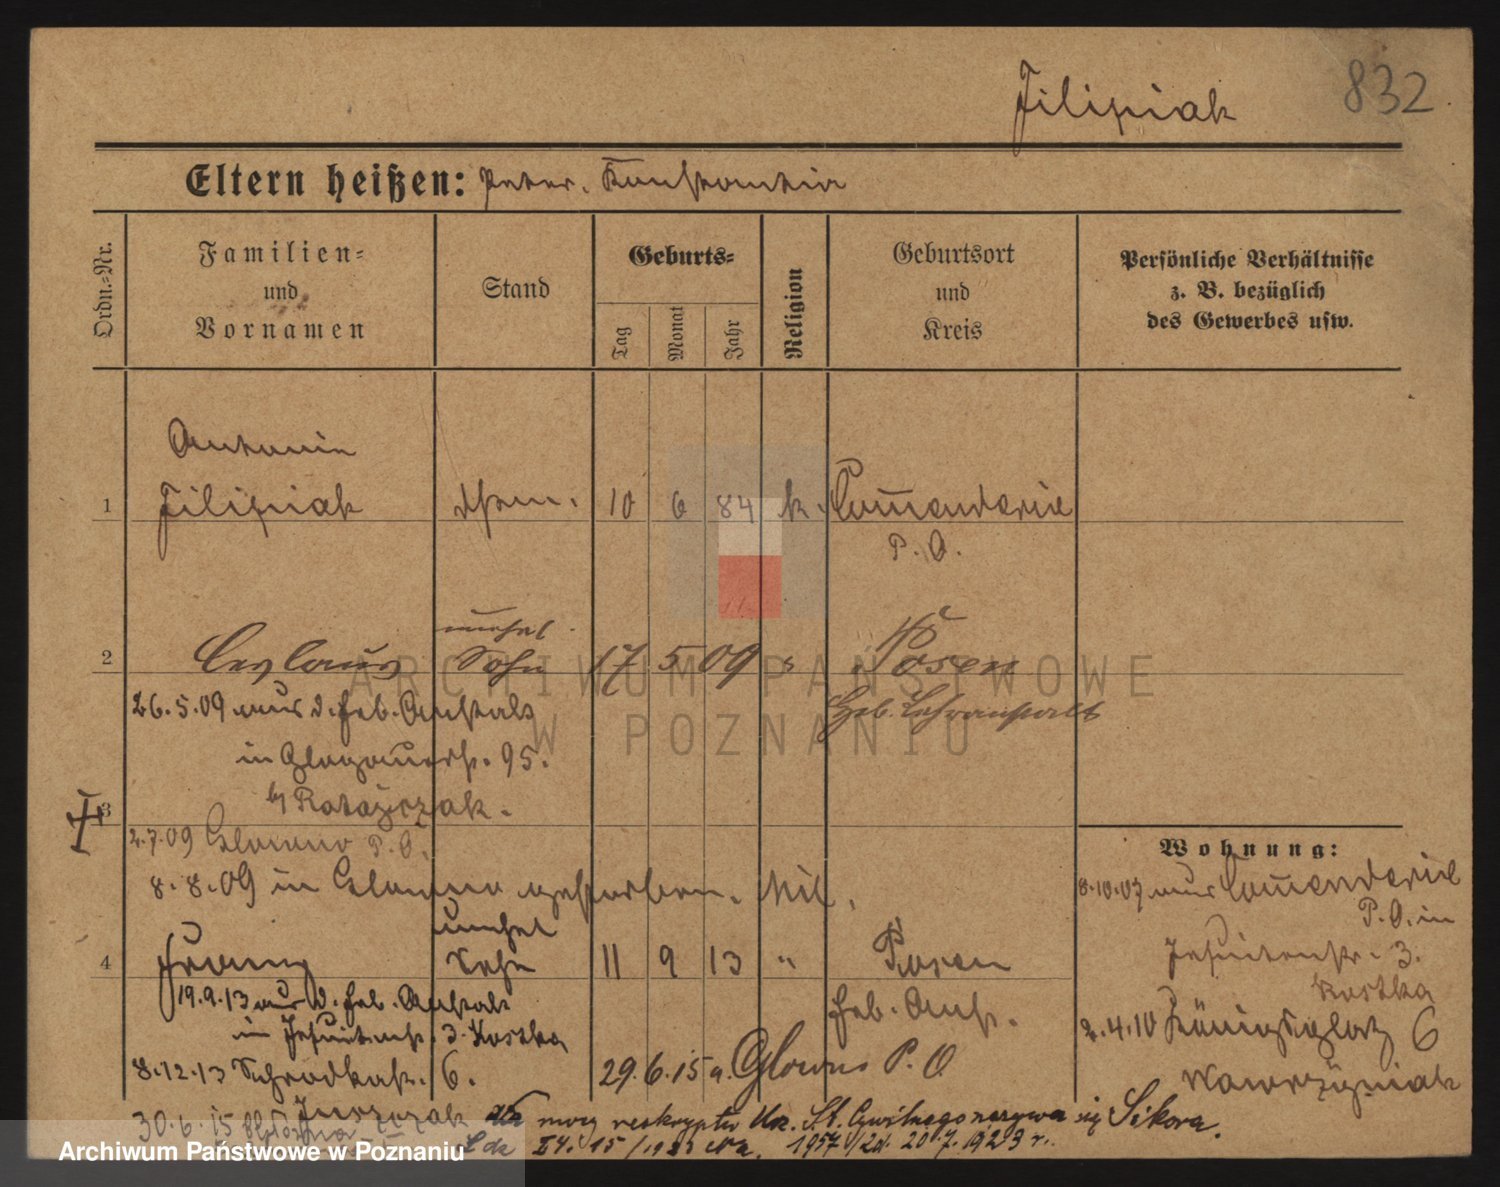 Filipiak 832
Eltern heißen: Peter. Konstantia
Ordn.-Nr.
Familien- und Vornamen
Stand
Geburts-
Tag
Monat
Jahr
Religion
Geburtsort und Kreis
Persönliche Verhältnisse z. B. bezüglich des Gewerbes usw.
Antonie
1 Filipiak 10 6 84 k. Commenderie
P. O.
unehel.
2 Ceslaus Sohn 17 5 09 " Posen
Heb. Lehranstalt
26.5.09 aus d. Heb. Anstalt
in Glogauerstr. 95.
b/ Ratajczak.
3
2.7.09 Glowno P. O.
8.8.09 in Glowno gestorben.
Wohnung:
8.10.07 aus Commenderie
P. O. in
Jesuitenstr. 3.
Kostka
2.4.10 Königsplatz 6
Wawrzyniak
unehel
4 Franz Sohn 11 9 13 " Posen
Heb. Anst.
19.9.13 aus d. Heb. Anstalt
in Jesuitenstr. 3. Kostka
8.12.13 Schrodkastr. 6.
Jurczak
29.6.15 a. Glowno P. O.
30.6.15
mocy reskryptu Urz. St. Cywilnego nazywa się Sikora.
15/1923 1957/23. 20.7.1923 r.
ARCHIWUM PAŃSTWOWE
W POZNANIU
Archiwum Państwowe w Poznaniu